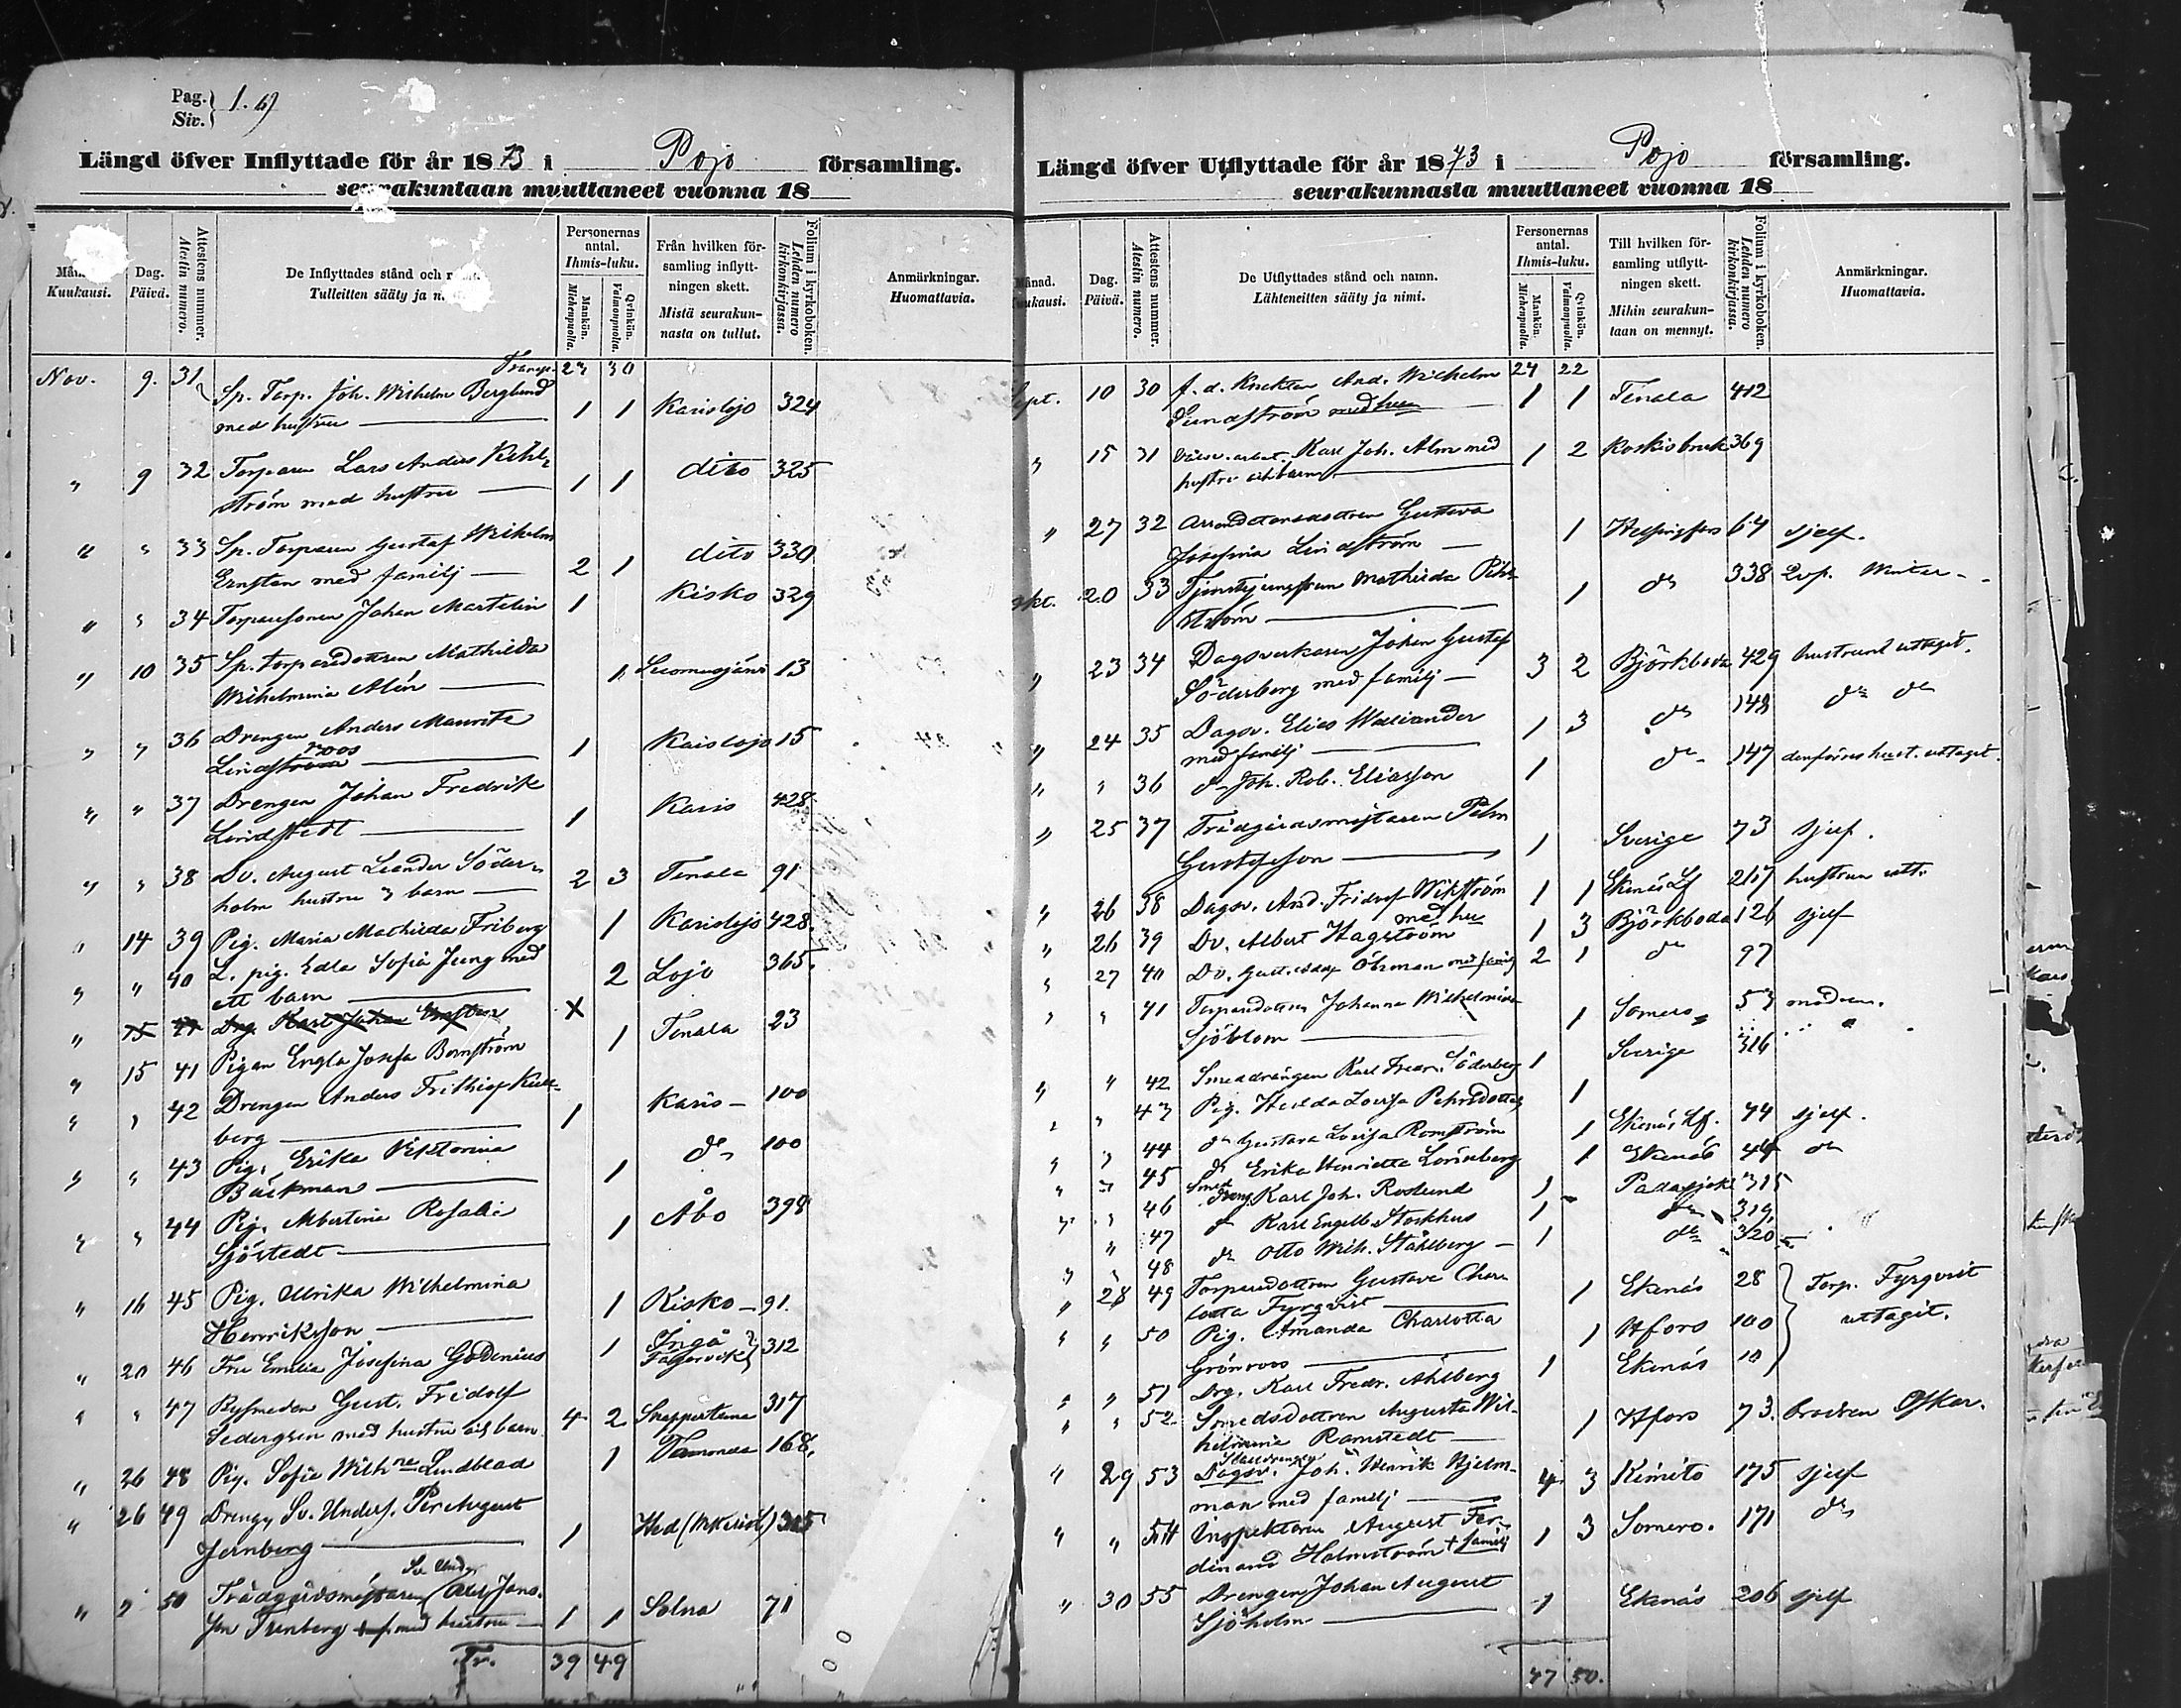 Pag. Siv. 1.
Längd öfver Inflyttade för år 1873 i Pojo församling.
seurakuntaan muuttaneet vuonna 18
Kuukausi.
Dag. Päivä.
Attestens nummer. Atestin numero.
De Inflyttades stånd och
Tulleitten sääty ja
Personernas antal. Ihmis-luku.
Mankön. Miehenpuolia.
Qvinkön. Vaimonpuolia.
Från hvilken församling inflyttningen skett.
Mistä seurakunnasta on tullut.
Folium i kyrkoboken. Lehden numero kirkonkirjassa.
Anmärkningar. Huomattavia.
Transp. 23 30
Nov. 9. 31 Sp. Torp. Joh. Wilhelm Berglund
med hustru 1 1 Karislojo 324
" 9 32 Torparen Lars Anders Kihl-
ström med hustru 1 1 dito 325
" " 33 Sp. Torparen Gustaf Wilhelm
Ernsten med familj 2 1 dito 330
" " 34 Torparesonen Johan Martelin 1 Kisko 329
" 10 35 Sp. torparedottren Mathilda
Wilhelmina Alén 1 Suomusjärvi 13
" " 36 Drengen Anders Maurits
Lindroos 1 Karislojo 15
" " 37 Drengen Johan Fredrik
Lindstedt 1 Karis 428
" " 38 Dv. August Leander Söder-
holm hustru 3 barn 2 3 Tenala 91
" 14 39 Pig. Maria Mathilda Friberg 1 Karislojo 428.
" " 40 L. pig. Edla Sofia Jung med
ett barn 2 Lojo 365.
" 15 41 Drg. Karl Johan Ernsten X
" 15 41 Pigan Engla Josefa Bomström 1 Tenala 23
" " 42 Drengen Anders Frithiof
berg 1 Karis 100
" " 43 Pig. Erika Viktorina
Bäckman 1 do 100
" " 44 Pig. Albertina Rosalie
Sjöstedt 1 Åbo 398
" 16 45 Pig. Ulrika Wilhelmina
Henriksson 1 Kisko 91.
" 20 46 Fru Emilia Josefina Godenius 1 Ingå Fagervik 312
" " 47 Bysmeden Gust. Fridolf
Sedergren med hustru och barn 4 2 Snappertuna 317
" 26 48 Pig. Sofia Wilhna Lindblad 1 168.
" 26 49 Dreng. Sv. Unders. Per August
Jernberg 1 Hed 315
" 2 50 Trädgårdsmästaren Sv. Under. Jans-
son Trenberg med hustru 1 1 Solna 71
Tr. 39 49
Längd öfver Utflyttade för år 1873 i Pojo församling.
seurakunnasta muuttaneet vuonna 18
Månad. Kuukausi.
Dag. Päivä.
Attestens nummer. Atestin numero.
De Utflyttades stånd och namn.
Lähteneitten sääty ja nimi.
Personernas antal. Ihmis-luku.
Mankön. Miehenpuolia.
Qvinkön. Vaimonpuolia.
Till hvilken församling utflyttningen skett.
Mihin seurakuntaan on mennyt.
Folium i kyrkoboken. Lehden numero kirkonkirjassa.
Anmärkningar. Huomattavia.
24 22
Sept. 10 30 f. d. Knekten And. Wilhelm
Sundström med hu 1 1 Tenala 412
" 15 31 arbet. Karl Joh. Alm med
hustru och barn 1 2 Koskisbruk 369
" 27 32 Arrendatorsdottren Gustava
Josefina Lindström 1 Helsingfors 64 sjelf.
Okt. 20 33 Tjenstejungfrun Mathilda Pihl-
ström 1 do 338
" 23 34 Dagsverkaren Johan Gustaf
Söderberg med familj 3 2 Björkboda 429 hustrun uttaget.
" 24 35 Dagsv. Elias Walliander
med familj 1 3 do 148 do do
" " 36 do Joh. Rob. Eliasson 1 do 147 uttaget.
" 25 37 Trädgårdsmästaren Pehr
Gustafsson 1 Sverige 73 sjelf.
" 26 38 Dagsv. And. Fridolf Wikström
med hu 1 1 Ekenäs Lf 217 hustrun utt.
" 26 39 Dv. Albert Hagström 1 3 Björkboda 126 sjelf
" 27 40 Dv. Gust. Adolf Öhman med familj 2 1 do 97
" " 41 Torparedottren Johanna Wilhelmina
Sjöblom 1 Somero 53 modren.
" " 42 Smeddrängen Karl Fredr. Söderberg 1 Sverige 316
" " 43 Pig. Hulda Lovisa Pehrsdotter 1
" " 44 do Gustava Lovisa Romström 1 Ekenäs Lf. 74 sjelf.
" " 45 do Erika Henrietta Lovénberg 1 Ekenäs 44 do
" " 46 Smed Dreng Karl Joh. Roslund 1 Padasjoki 315
" 47 do Karl Engelb. Stockhus 1 do 319
" " 48 do Otto Wilh. Ståhlberg 1 do 320
" 28 49 Torparedottren Gustava Char-
lotta Fyrqvist 1 Ekenäs 28 Torp. Fyrqvist
" " 50 Pig. Amanda Charlotta
Grönroos 1 Hfors 100 uttagit.
" " 51 Drg. Karl Fredr. Ahlberg 1 Ekenäs 10
" " 52 Smedsdottren Augusta Wil-
helmina Ramstedt 1 Hfors 73. Brodren Oskar.
" 29 53 Dagsv. Joh. Henrik Hjelm-
man med familj 4 3 Kimito 175 sjelf
" " 54 Inspektoren August Fer-
dinand Holmström + familj 1 3 Somero. 171 do
" 30 55 Drengen Johan August
Sjöholm 1 Ekenäs 206 sjelf
47 50.